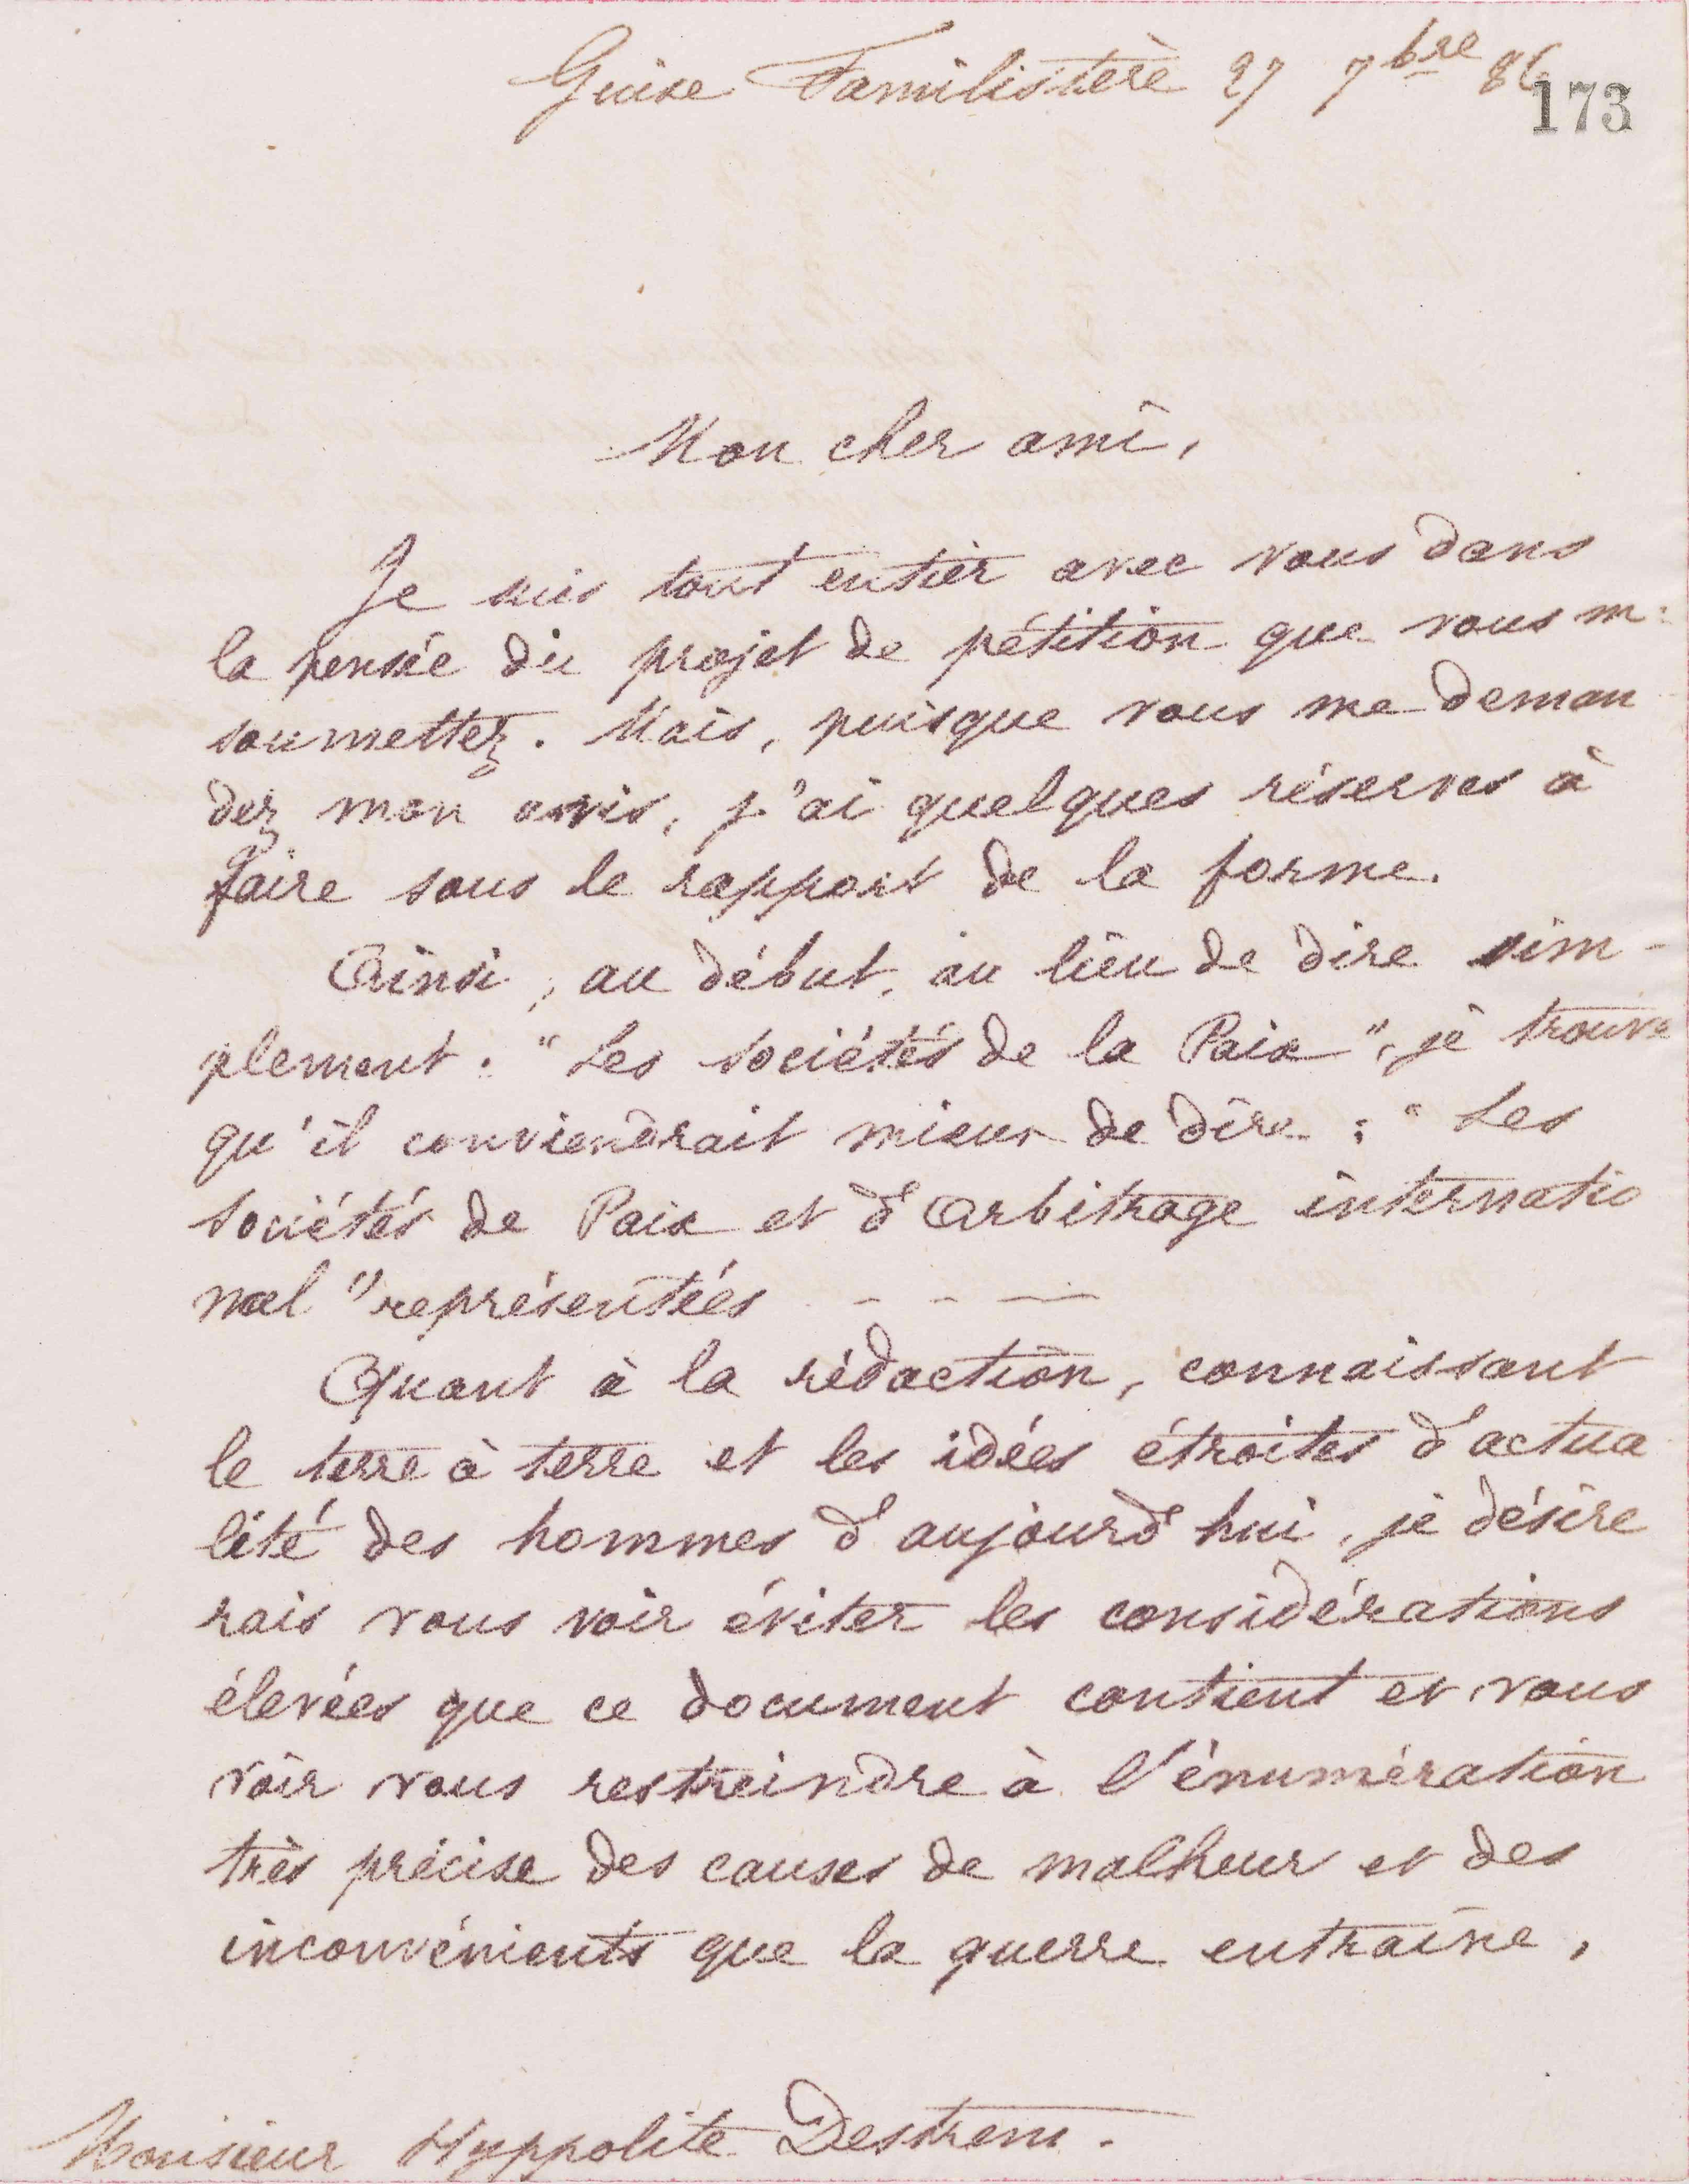 Guise Familistère 27 7bre 86
173
Mon cher ami,
Je suis tout entier avec vous dans
la pensée du projet de pétition que vous m
soumettez. Mais, puisque vous me deman
dez mon avis, j'ai quelques réserves à
faire sous le rapport de la forme.
Ainsi, au début, au lieu de dire sim-
plement : "Les sociétés de la Paix", je trouve
qu'il conviendrait mieux de dire : "Les
sociétés de Paix et d'Arbitrage internatio
nal" représentées - - - —
Quant à la rédaction, connaissant
le terre à terre et les idées étroites d'actua
lité des hommes d'aujourd'hui, je désire
rais vous voir éviter les considérations
élevées que ce document contient et vous
voir vous restreindre à l'énumération
très précise des causes de malheur et des
inconvénients que la guerre entraîne,
Monsieur Hyppolite Destrem.